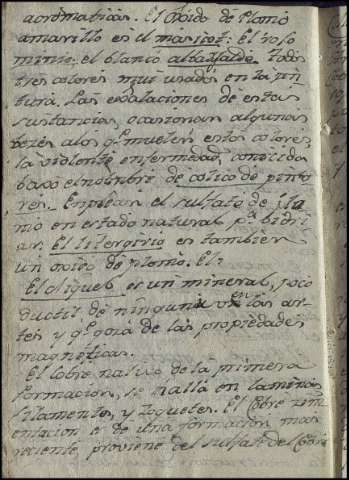 acromaticas. El Oxido de Plomo
amarillo es el masicot: El rojo
minio: el blanco albayalde. Todos
tres colores muy usados en la pin
tura. Las exalaciones de estas
sustancias, ocasionan algunas
vezes a los qe. muelen estos colores,
la violenta enfermedad, conocida
baxo el nombre de colico de pinto
res. Emplean el sulfato de plo
mo en estado natural pa. bidri
ar. El litargirio es tambien
un oxido de plomo. El:
El niquel es un mineral, poco
ductil de ninguna en las ar-
tes y qe. goza de las propiedades
magnéticas.
El Cobre nativo de la primera
formacion, se halla en laminas
filamentos, y zoquetes. El Cobre
es de una formacion mas
reciente proviene del sulfato del Cobre